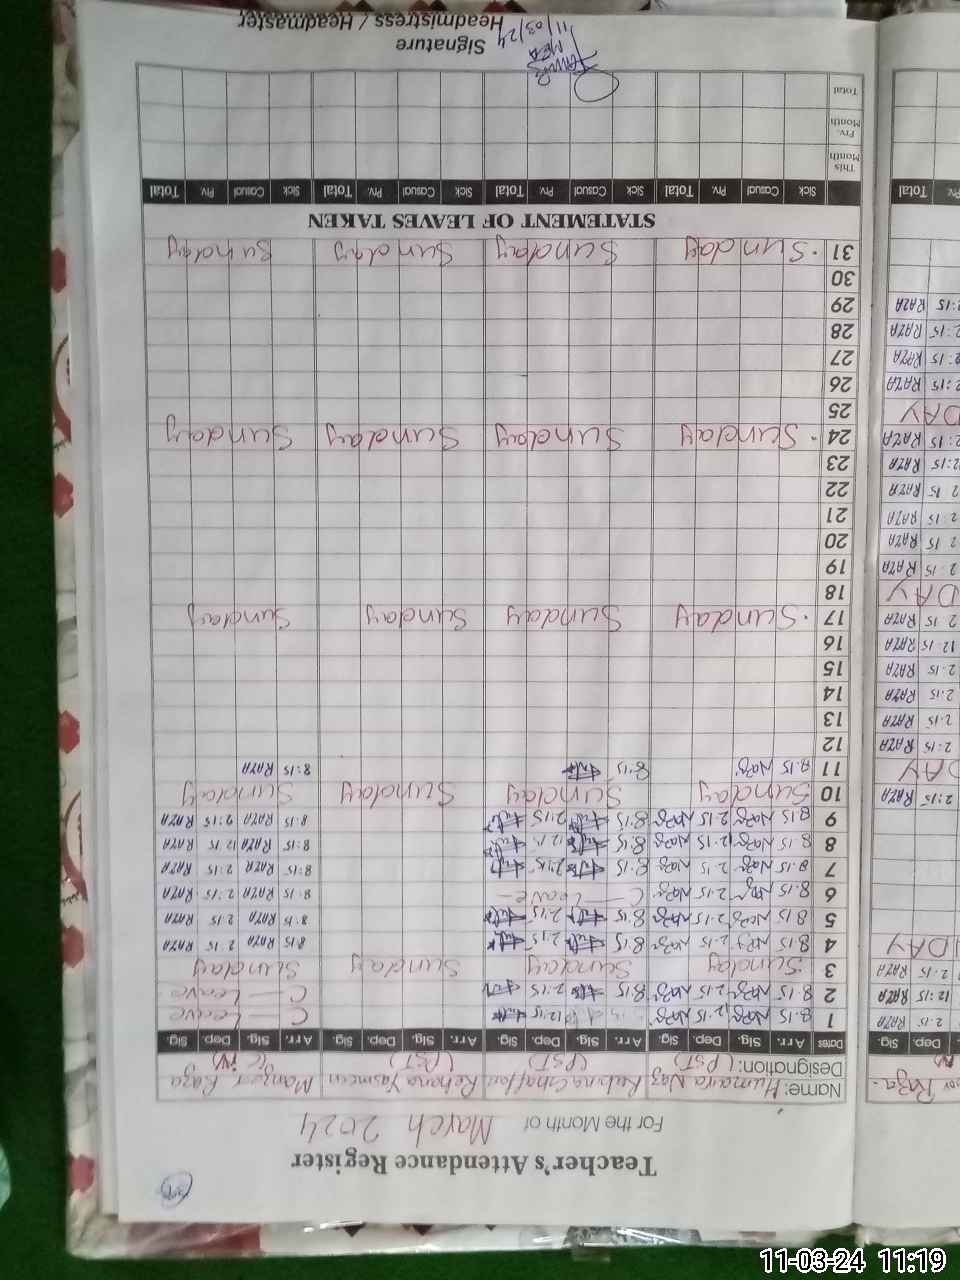 Teacher's Attendance Register
For the Month of March 2024
Name: Humaira Naz Rubina Ghaffar Rehana Yasmeen Manzor Raza
Designation: (PST) (PST) (PST)
Dates Arr. Sig. Dep. Sig. Arr. Sig. Dep. Sig. Arr. Sig. Dep. Sig. Arr. Sig. Dep. Sig.
1 8-15 Naz 2-15 Naz 12:15 C — Leave
2 8-15 Naz 2-15 Naz 8:15 2:15 C — Leave
3 Sunday Sunday Sunday Sunday
4 8-15 Naz 2-15 Naz 8:15 2:15 8:15 RAZA 2:15 RAZA
5 8-15 Naz 2-15 Naz 8:15 2:15 8:15 RAZA 2:15 RAZA
6 8-15 Naz 2-15 Naz C — Leave — 8:15 RAZA 2:15 RAZA
7 8-15 Naz 2-15 Naz 8:15 2:15 8:15 RAZA 2:15 RAZA
8 8-15 Naz 12-15 Naz 8:15 12:15 8:15 RAZA 12:15 RAZA
9 8-15 Naz 2-15 Naz 8:15 2:15 8:15 RAZA 2:15 RAZA
10 Sunday Sunday Sunday Sunday
11 8-15 Naz 8:15 8:15 RAZA
12
13
14
15
16
17 Sunday Sunday Sunday Sunday
18
19
20
21
22
23
24 Sunday Sunday Sunday Sunday
25
26
27
28
29
30
31 Sunday Sunday Sunday Sunday
STATEMENT OF LEAVES TAKEN
Sick Casual Prv. Total Sick Casual Prv. Total Sick Casual Prv. Total Sick Casual Prv. Total
This Month
Prv. Month
Total
MEA
11/03/24
Signature
Headmistress / Headmaster
Raza
Dep. Sig.
2-15 RAZA
12:15 RAZA
2-15 RAZA
DAY
2:15 RAZA
DAY
2:15 RAZA
2-15 RAZA
2-15 RAZA
2-15 RAZA
12-15 RAZA
2-15 RAZA
DAY
2-15 RAZA
2-15 RAZA
2-15 RAZA
2-15 RAZA
2:15 RAZA
2:15 RAZA
DAY
2:15 RAZA
2:15 RAZA
2:15 RAZA
2:15 RAZA
Prv. Total
11-03-24 11:19